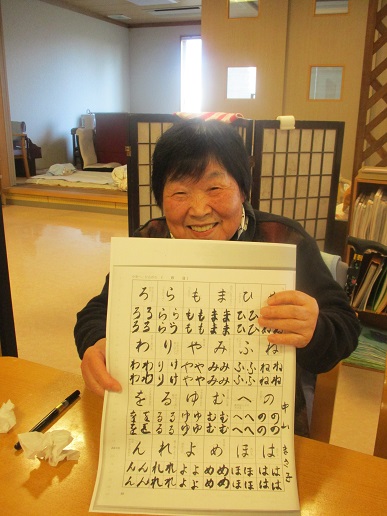 中山 まさ子
ぬ
ねね
ねね
の
のの
のの
は
はは
はは
ひ
ひひ
ひひ
ふ
ふふ
ふふ
へ
へへ
へへ
ほ
ほほ
ほほ
ま
まま
まま
み
みみ
みみ
む
むむ
むむ
め
めめ
めめ
も
もも
もも
や
やや
やや
ゆ
ゆゆ
ゆゆ
よ
よよ
よよ
ら
らら
らら
り
りり
りり
る
るる
るる
れ
れれ
れれ
ろ
ろろ
ろろ
わ
わわ
わわ
を
をを
をを
ん
んん
んん